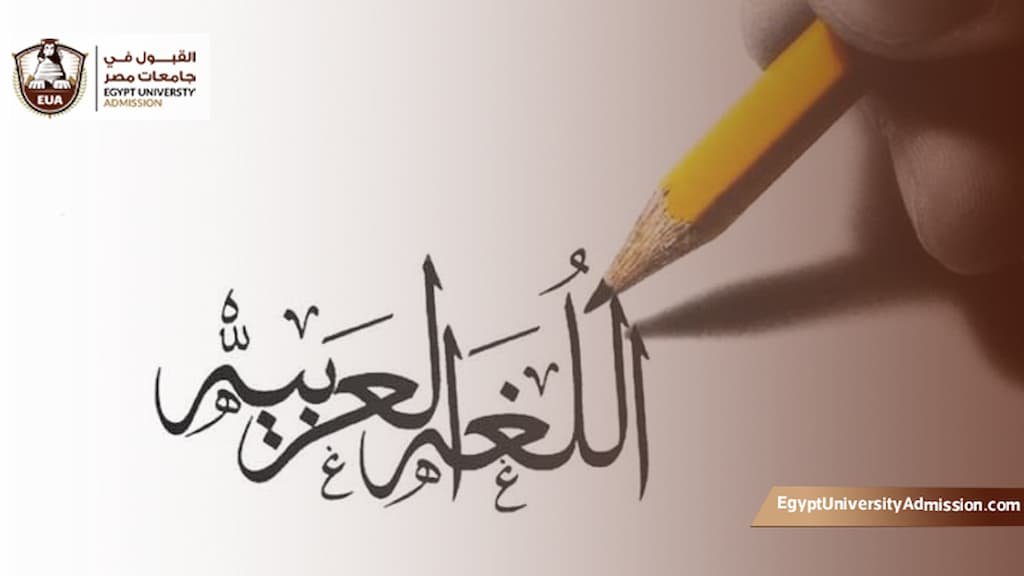 القبول في
جامعات مصر
EGYPT UNIVERSTY
ADMISSION
EUA
اللُغَه العَربيّه
EgyptUniversityAdmission.com